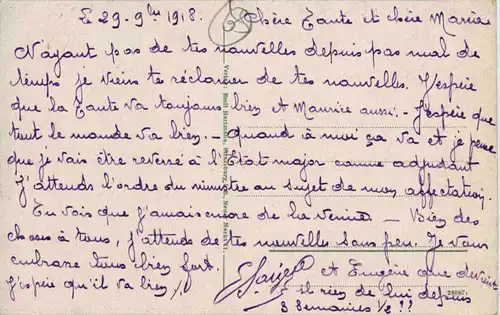 Le 29-9bre 1918. Chère Tante et chère Maria
N'ayant pas de tes nouvelles depuis pas mal de
temps je viens te réclamer de tes nouvelles. J'espère
que la Tante va toujours bien et Maurice aussi. - J'espère que
tout le monde va bien. - quand à moi ça va et je pense
que je vais être reversé à l'Etat major comme adjudant
J'attends l'ordre du ministre au sujet de mon affectation.
Tu vois que j'aurais encore de la veine. - Bien des
choses à tous, j'attends de tes nouvelles sans peu. Je vous
embrasse tous bien fort.
et Eugène que devient
j'espère qu'il va bien
il rien de lui depuis
3 semaines 1/2 ??